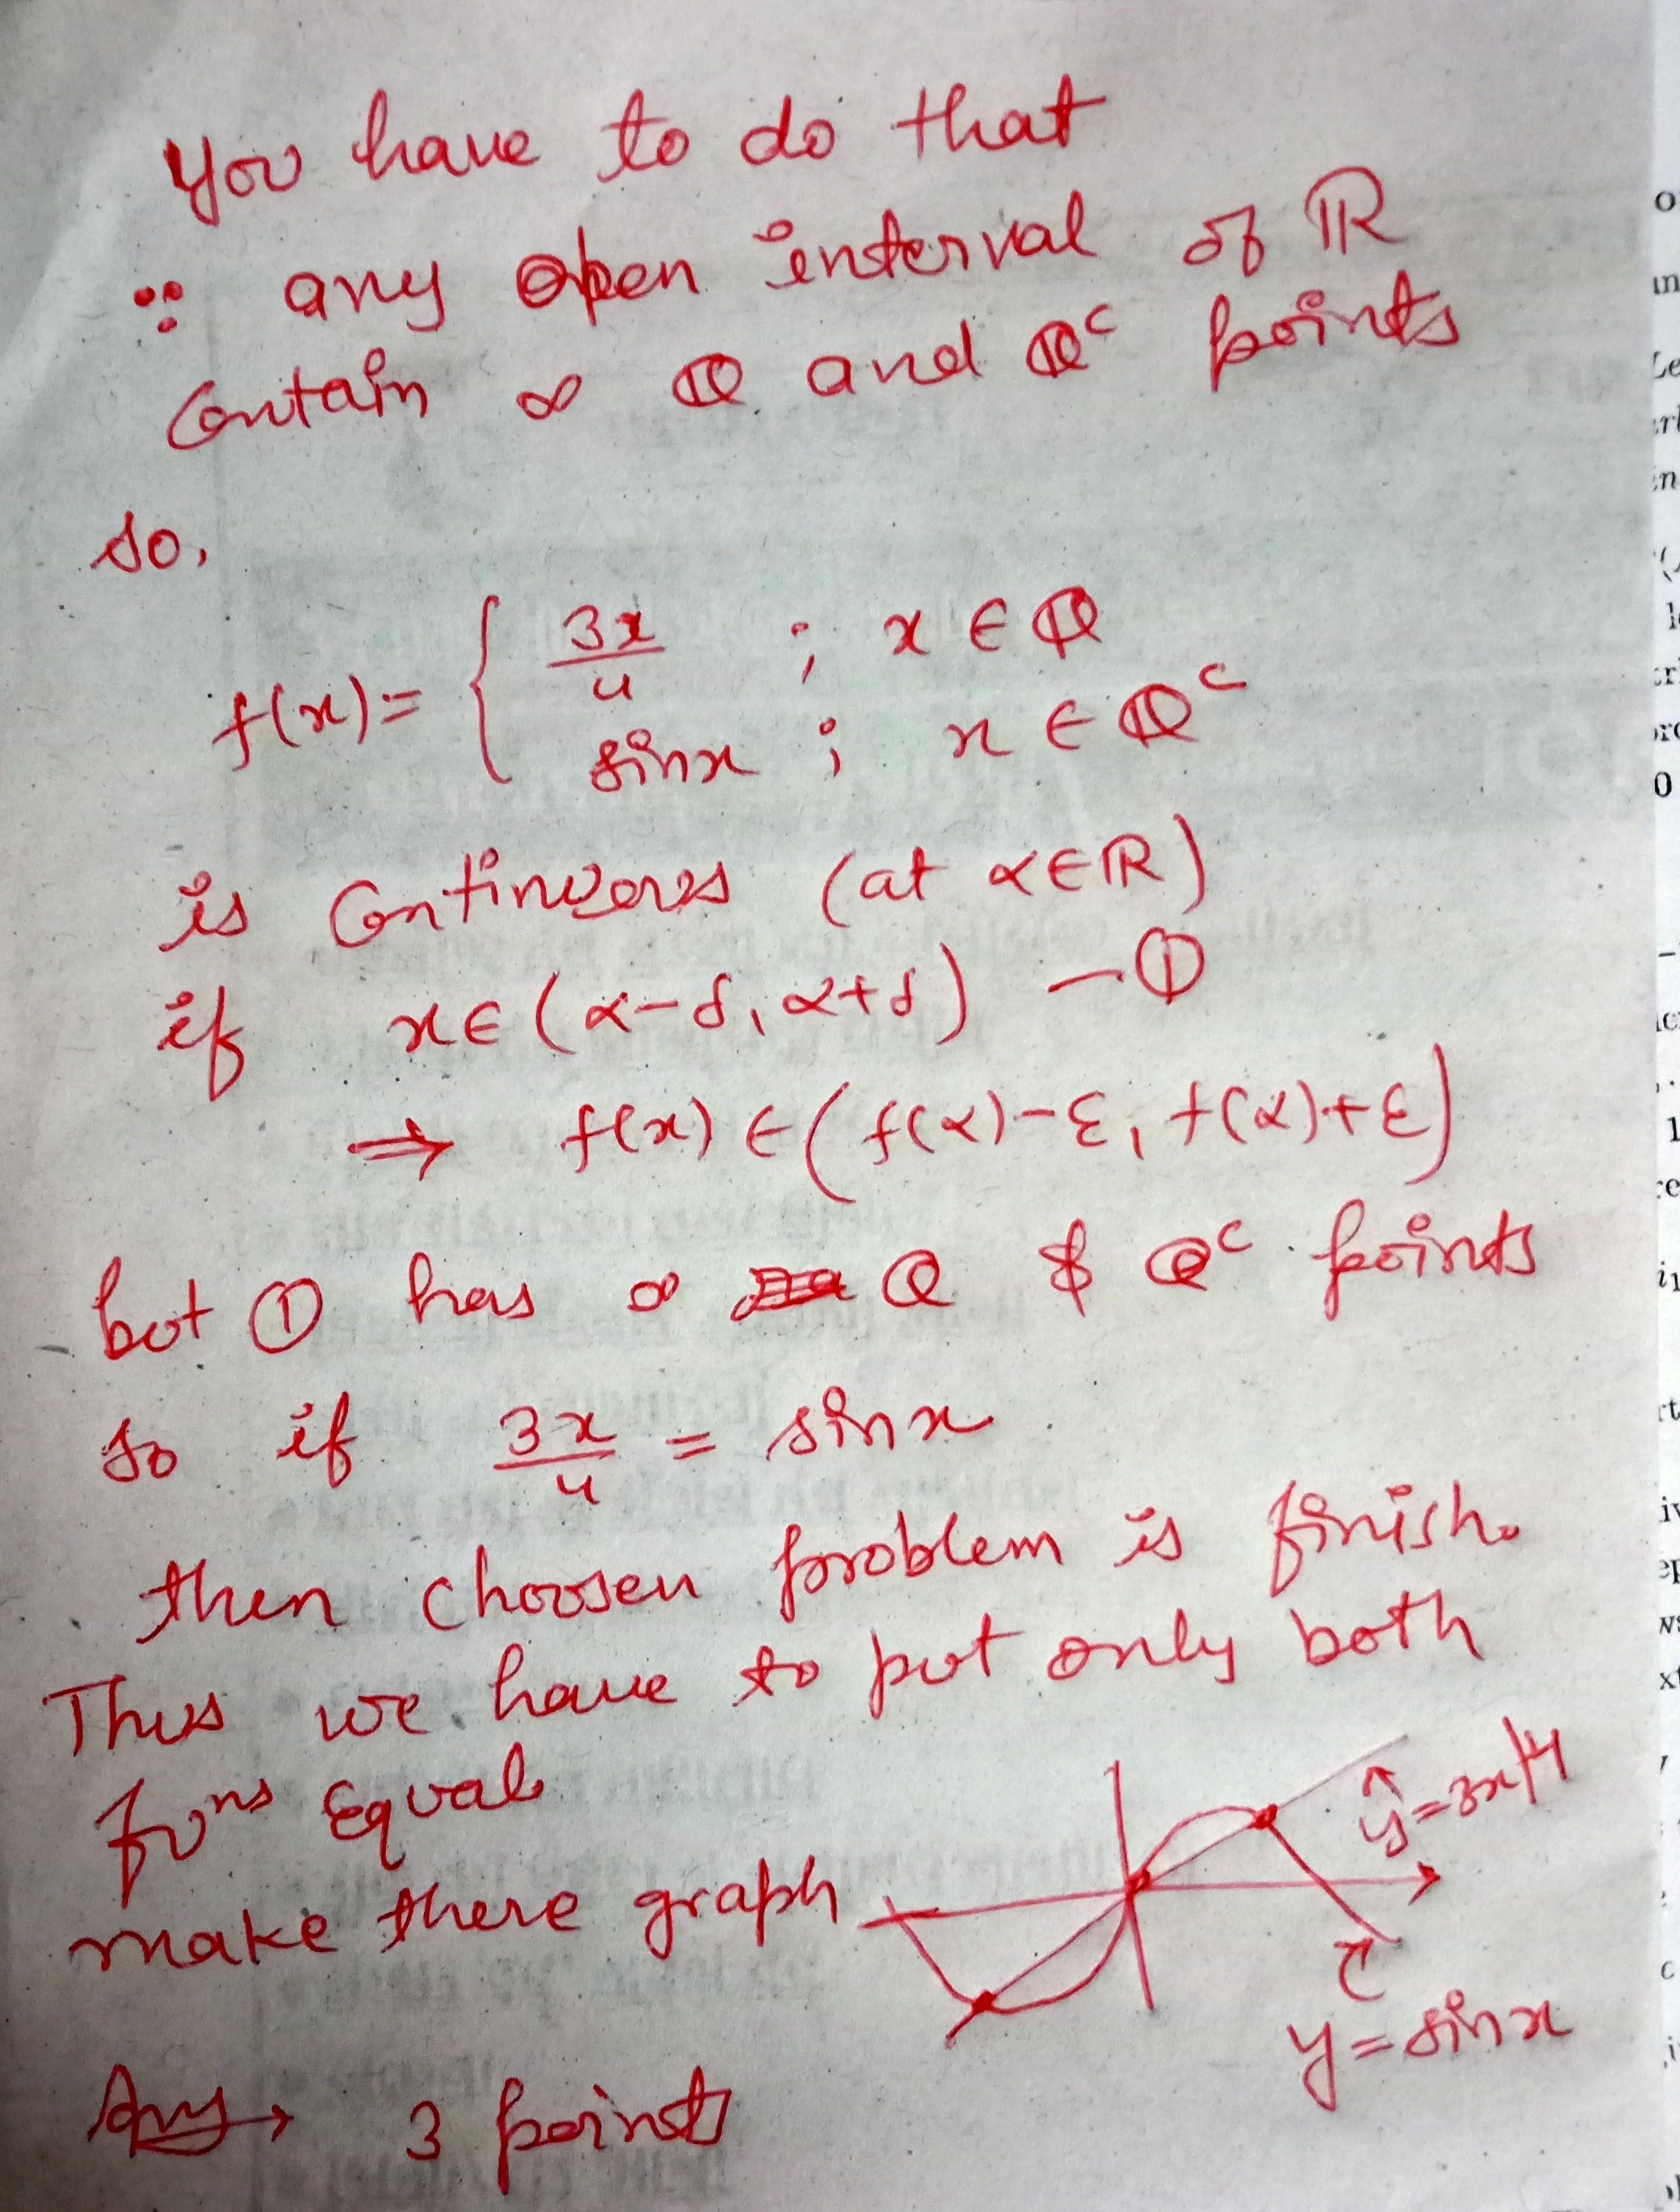 You have to do that
∵ any open interval of ℝ
Contain ∞ ℚ and ℚᶜ points
so,
f(x) = { 3x/4 ; x ∈ ℚ
sinx ; x ∈ ℚᶜ
is Continuous (at α∈ℝ)
if x∈(α-δ, α+δ) —①
⇒ f(x) ∈ (f(α)-ε, f(α)+ε)
but ① has ∞ Q & Qᶜ points
so if 3x/4 = sinx
then choosen problem is finish.
Thus we have to put only both
fuⁿˢ Equal
make there graph
y=3x/4
y=sinx
Ans→ 3 points